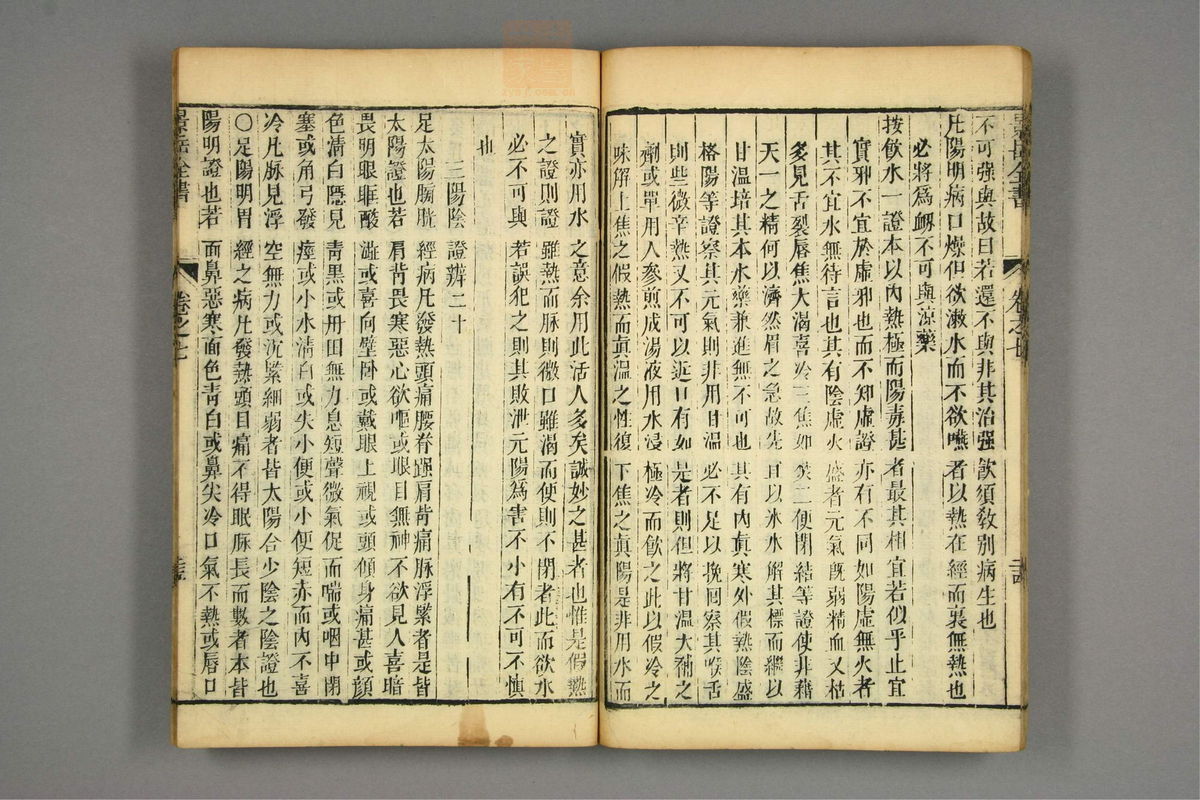 不可強與故曰若還不與非其治強飲須教別病生也
凡陽明病口燥但欲漱水而不欲嚥者以熱在經而裏無熱也
必將爲衂不可與凉藥
按飲水一證本以內熱極而陽毒甚者最其相宜若似乎止宜
實邪不宜於虛邪也而不知虛證亦有不同如陽虛無火者
其不宜水無待言也其有陰虛火盛者元氣旣弱精血又枯
多見舌裂唇焦大渴喜冷三焦如焚二便閉結等證使非藉
天一之精何以濟然眉之急故先宜以氷水解其標而繼以
甘溫培其本水藥兼進無不可也其有內眞寒外假熱陰盛
格陽等證察其元氣則非用甘溫必不足以挽囘察其喉舌
則些微辛熱又不可以近口有如是者則但將甘溫大補之
劑或單用人參煎成湯液用水浸極冷而飲之此以假冷之
味解上焦之假熱而眞溫之性復下焦之眞陽是非用水而
實亦用水之意余用此活人多矣誠妙之甚者也惟是假熱
之證則證雖熱而脉則微口雖渴而便則不閉者此而欲水
必不可與若誤犯之則其敗泄元陽爲害不小有不可不慎
也
三陽陰證辨二十
足太陽膀胱經病凡發熱頭痛腰脊强肩背痛脉浮緊者是皆
太陽證也若肩背畏寒惡心欲嘔或眼目無神不欲見人喜暗
畏明眼眶酸澁或喜向壁臥或戴眼上視或頭傾身痛甚或顏
色淸白隱見靑黑或丹田無力息短聲微氣促而喘或咽中閉
塞或角弓發痙或小水淸白或失小便或小便短赤而內不喜
冷凡脉見浮空無力或沉緊細弱者皆太陽合少陰之陰證也
○足陽明胃經之病凡發熱頭目痛不得眠脉長而數者本皆
陽明證也若面鼻惡寒面色靑白或鼻尖冷口氣不熱或唇口
景岳全書
卷之七